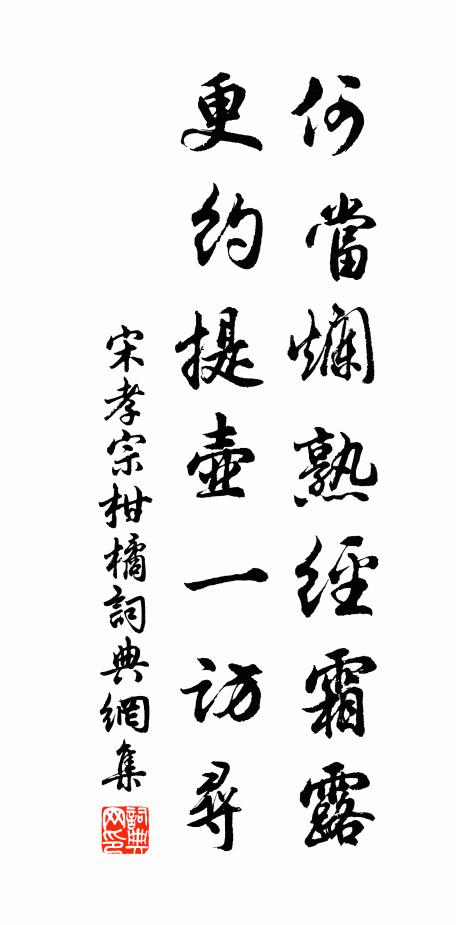 何當爛熟經霜露
更約提壺一訪尋
宋孝宗柑橘詞典網集
詞典網印